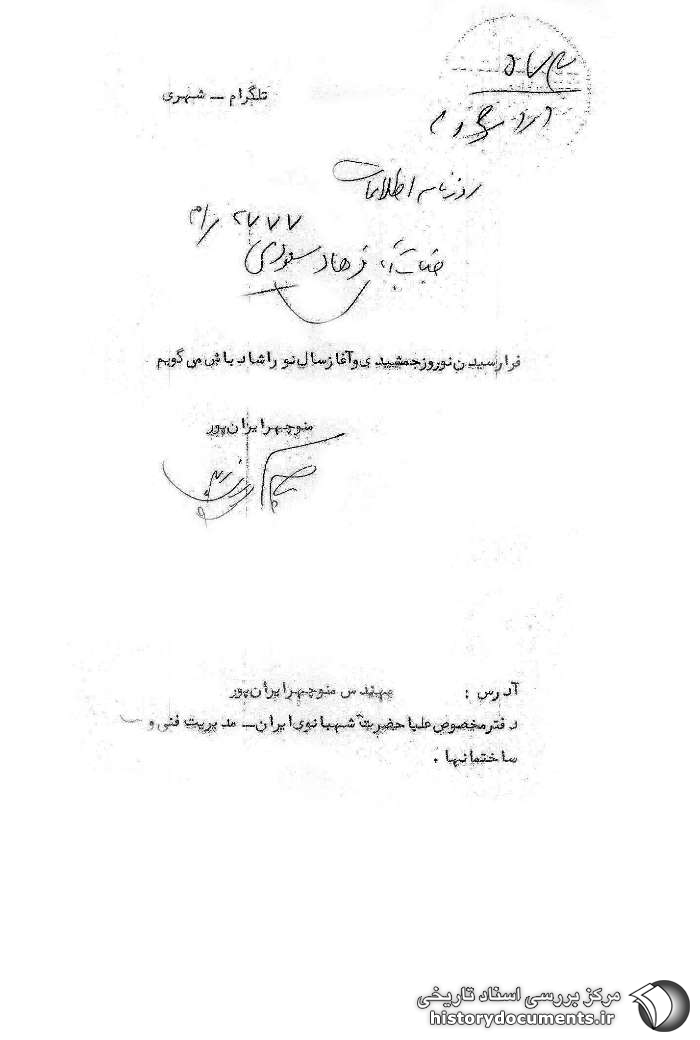 تلگرام – شهری
روزنامه اطلاعات
فرهاد مسعودی
فرا رسیدن نوروز جمشیدی و آغاز سال نو را شاد باش می گویم
منوچهر ایران پور
آدرس : مهندس منوچهر ایران پور
دفتر مخصوص علیا حضرت شهبانوی ایران – مدیریت فنی و
ساختمانها .
مرکز بررسی اسناد تاریخی
historydocuments.ir